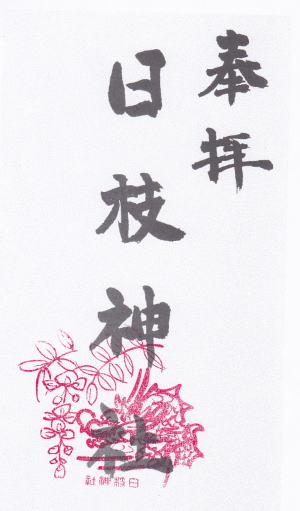 奉拝
日枝神社
日枝神社